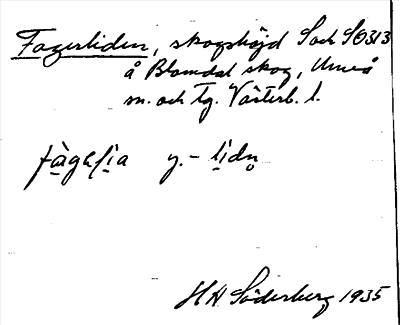 Fagerliden, skogshöjd S och SO 313
å Blomdal skog, Umeå
sn. och tg. Västerb. l.
y. – lidn̥
H H Söderberg 1935